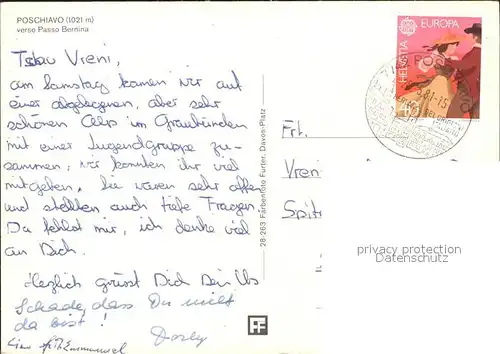 POSCHIAVO (1021 m)
verso Passo Bernina
Vreni,
am Samstag kamen wir auf
einer abgelegenen, aber sehr
schönen Alp im Graubünden
mit einer Jugendgruppe zu-
sammen; wir konnten ihr viel
mitgeben, Sie waren sehr offen
und stellten auch tiefe Fragen.
Du fehlst mir, ich denke viel
an Dich.
Herzlich grüsst Dich Dein Us
Schade, dass Du nicht
da bist!
Dorly
28-263 Farbenfoto Furter, Davos-Platz
FF
HELVETIA
EUROPA
CEPT
POSCHIAVO
Frl.
Vreni
Spit
privacy protection
Datenschutz